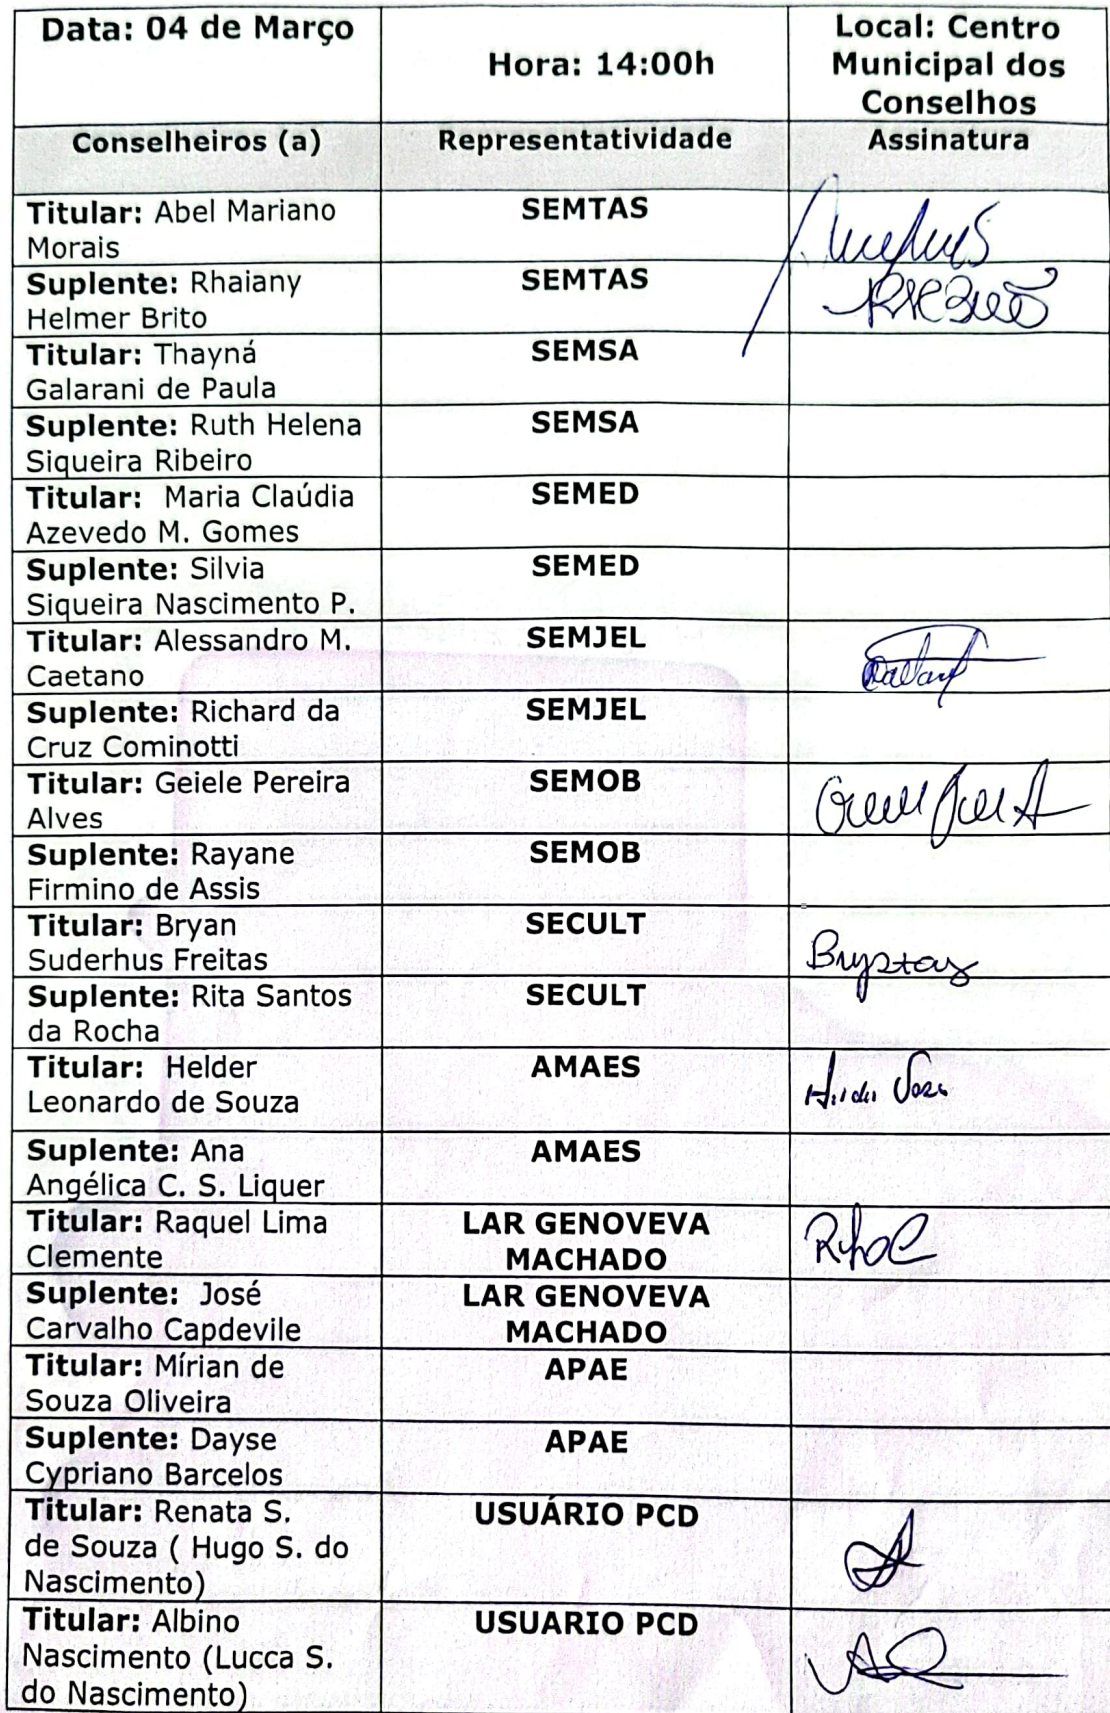 Data: 04 de Março
Hora: 14:00h
Local: Centro
Municipal dos
Conselhos
Conselheiros (a)
Representatividade
Assinatura
Titular: Abel Mariano
Morais
SEMTAS
Suplente: Rhaiany
Helmer Brito
SEMTAS
Titular: Thayná
Galarani de Paula
SEMSA
Suplente: Ruth Helena
Siqueira Ribeiro
SEMSA
Titular: Maria Claúdia
Azevedo M. Gomes
SEMED
Suplente: Silvia
Siqueira Nascimento P.
SEMED
Titular: Alessandro M.
Caetano
SEMJEL
Suplente: Richard da
Cruz Cominotti
SEMJEL
Titular: Geiele Pereira
Alves
SEMOB
Suplente: Rayane
Firmino de Assis
SEMOB
Titular: Bryan
Suderhus Freitas
SECULT
Suplente: Rita Santos
da Rocha
SECULT
Titular: Helder
Leonardo de Souza
AMAES
Suplente: Ana
Angélica C. S. Liquer
AMAES
Titular: Raquel Lima
Clemente
LAR GENOVEVA
MACHADO
Suplente: José
Carvalho Capdevile
LAR GENOVEVA
MACHADO
Titular: Mírian de
Souza Oliveira
APAE
Suplente: Dayse
Cypriano Barcelos
APAE
Titular: Renata S.
de Souza ( Hugo S. do
Nascimento)
USUÁRIO PCD
Titular: Albino
Nascimento (Lucca S.
do Nascimento)
USUARIO PCD